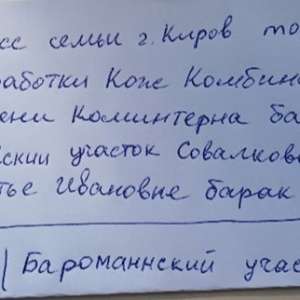 сс семьи г. Киров то
работки Коже Комбина
ени Коминтерна ба
ский участок Совалково
тье Ивановне барак
Бароманнский учас